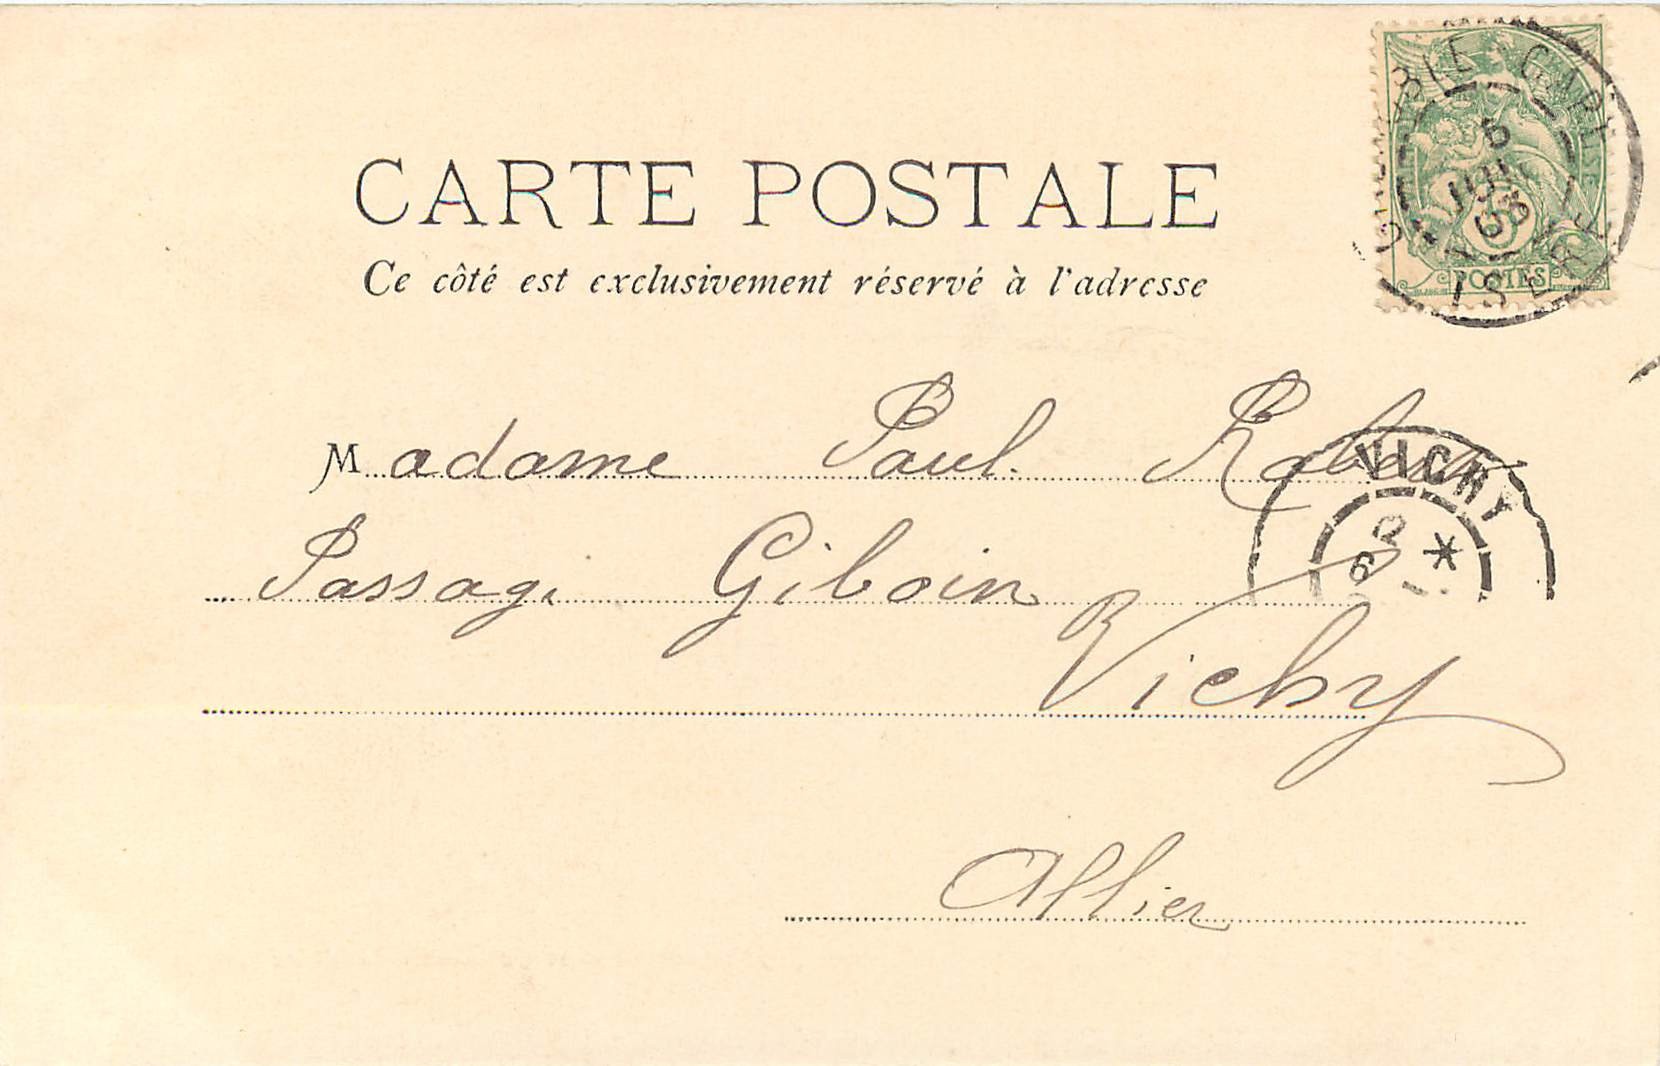 CARTE POSTALE
Ce côté est exclusivement réservé à l'adresse
Madame Paul
Passage Giboin
Vichy
Allier
POSTES
5
GARE
ISERE
VICHY
6